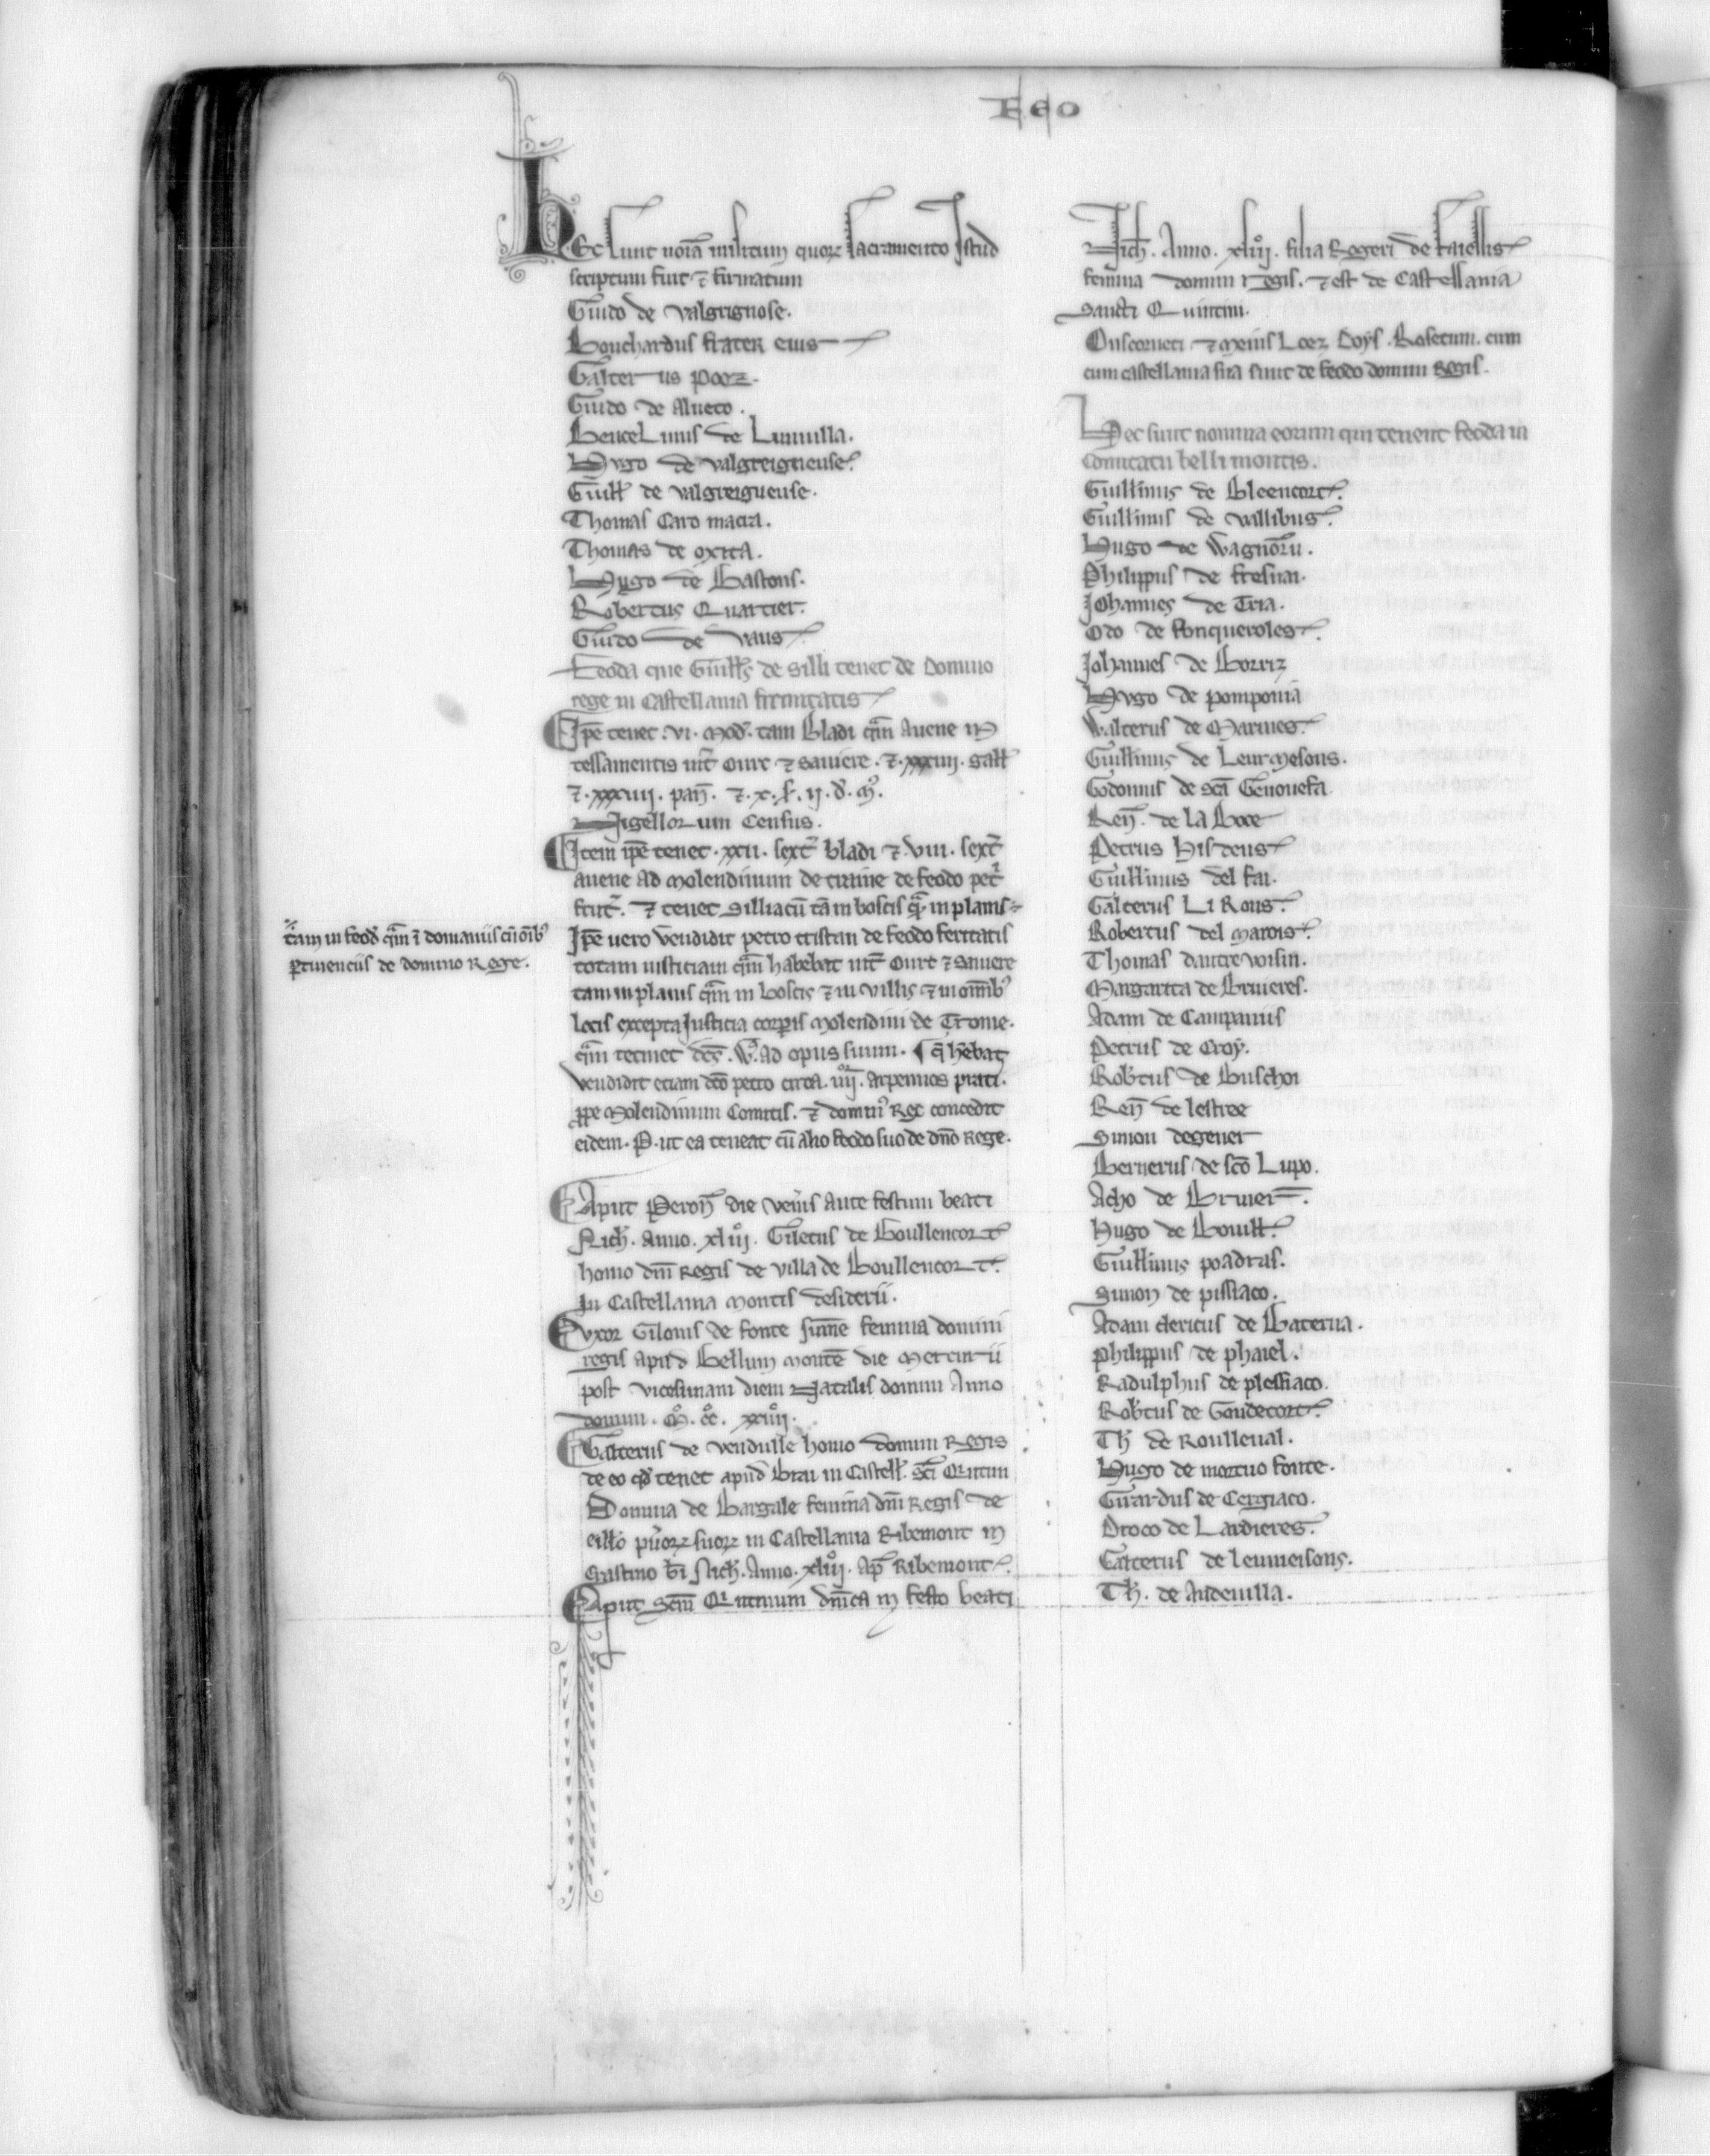 Feo
Hec sunt noīa militum quorꝝ sacramento istud
scriptum fuit ⁊ firmatum
Guido de valgrignose.
Bouchardus frater eius
Galterius poorꝝ.
Guido de Alneto.
Hugo de valgreigneuse.
Guill̄ de valgreigneuse.
Thomas Caro macra.
Thomas de oxita.
Hugo de Bastons.
Robertus Quartier.
Guido de vaus
Feoda que Guill̄s de silli tenet de domino
rege in Castellania firmitatis
Ip̄e tenet. vi. mod̄. tam bladi q̄m avene in
⁊ . xxxiiii. pan̄. ⁊ . x. s̄. ii. d̄.
Nigellorum Census.
Item ip̄e tenet. xxii. sext̄ bladi ⁊ viii. sext̄
avene ad molendinum de de feodo pet̄
⁊ tenet Silliacū tā in boscis q̄ in planis
tam in feod̄ q̄m ī domaniis cū om̄ib⁹
ꝑtinenciis de domino Rege.
Ip̄e vero vendidit petro tristan de feodo feritatis
totam iusticiam q̄m habebat int̄ Ourc ⁊ Saviere
tam in planis q̄m in boscis ⁊ in villis ⁊ in om̄ib⁹
locis excepta Justicia corꝑis molendini de Trome.
q̄m retinet dc̄s. W. ad opus suum. q̄ hēbat
vendidit etiam dc̄o petro circa. iiii. arpennos prati.
ꝓpe molendinum Comitis. ⁊ domin⁹ Rex concedit
eidem. P. ut ea teneat cū alio feodo suo de dn̄o Rege.
Aput Peron̄ die ven̄is ante festum beati
Mich̄. Anno. xliii. Giletus de Boullencort
homo dn̄i Regis de villa de Boullencort.
In Castellania montis desiderii.
Uxor Gilonis de fonte sūme femina domini
regis apud Bellum montē die Mercurii
post vicesimam diem Natalis domini Anno
domini. M̊. c̊c. xxiiii.
Galterus de vendulle homo domini Regis
de eo qd̄ tenet apud Brai in Castell̄. Sc̄i Quintini
Domina de Bargale femina dn̄i Regis de
ballo pu̾orꝝ suorꝝ in Castellania Ribemont in
Crastino b̄i Mich̄. Anno. xliii. ap̄ Ribemont.
Aput Sc̄m Quintinum dn̄ica in festo beati
Mich̄. Anno. xliii. filia Rogeri de
femina domini Regis. ⁊ est de Castellania
Sancti Quintini.
cum castellania sita sunt de feodo domini Regis.
Hec sunt nomina eorum qui tenent feoda in
comitatu belli montis.
Guill̄mus de Bleencort.
Guill̄mus de vallibus.
Hugo de Wagnoru.
Philippus de fresnai.
Johannes de Tria.
Odo de fonqueroles.
Johannes de Borriz
Hugo de pomponia
Walterus de Marines.
Guill̄mus de Leurmesons.
Godonus de sc̄a Genouefa.
Ren̄. de la Boce
Petrus Hisdeus
Guill̄mus del fai.
Galterus Li Rous.
Robertus del marois.
Thomas dautre voisin.
Margarita de Bruieres.
Adam de Campaniis
Petrus de Croy.
Rob̄tus de Buschoi
Ren̄ de lestree
Simon degener
Bernerus de sc̄o Lupo.
Acho de Bruier̄.
Hugo de Bouill̄.
Guill̄mus poadras.
Simon de pissiaco.
Adam clericus de Baterna.
Philippus de phaiel.
Radulphus de plessiaco.
Rob̄tus de Goudecort.
Th̄ de Roulleual.
Hugo de mortuo fonte.
Girardus de Cergiaco.
Droco de Lardieres.
Galterus de leumeisons.
Th̄. de Andeuilla.